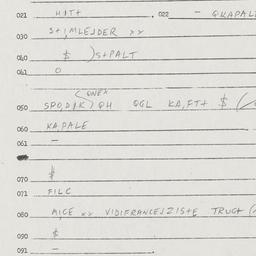 021 HIT+ . 022 - QKAPAL
030 S+;MLEJDER xx
040 $ )S+PALT
041 O
050 SPO,D;K) QH QGL KA,FT+ $ (
060 KA,PALE
061 -
070 $
071 FILC
080 MICE xx VIDIFRANCEJZIS+E TRUG+ (
090 $
091 - .